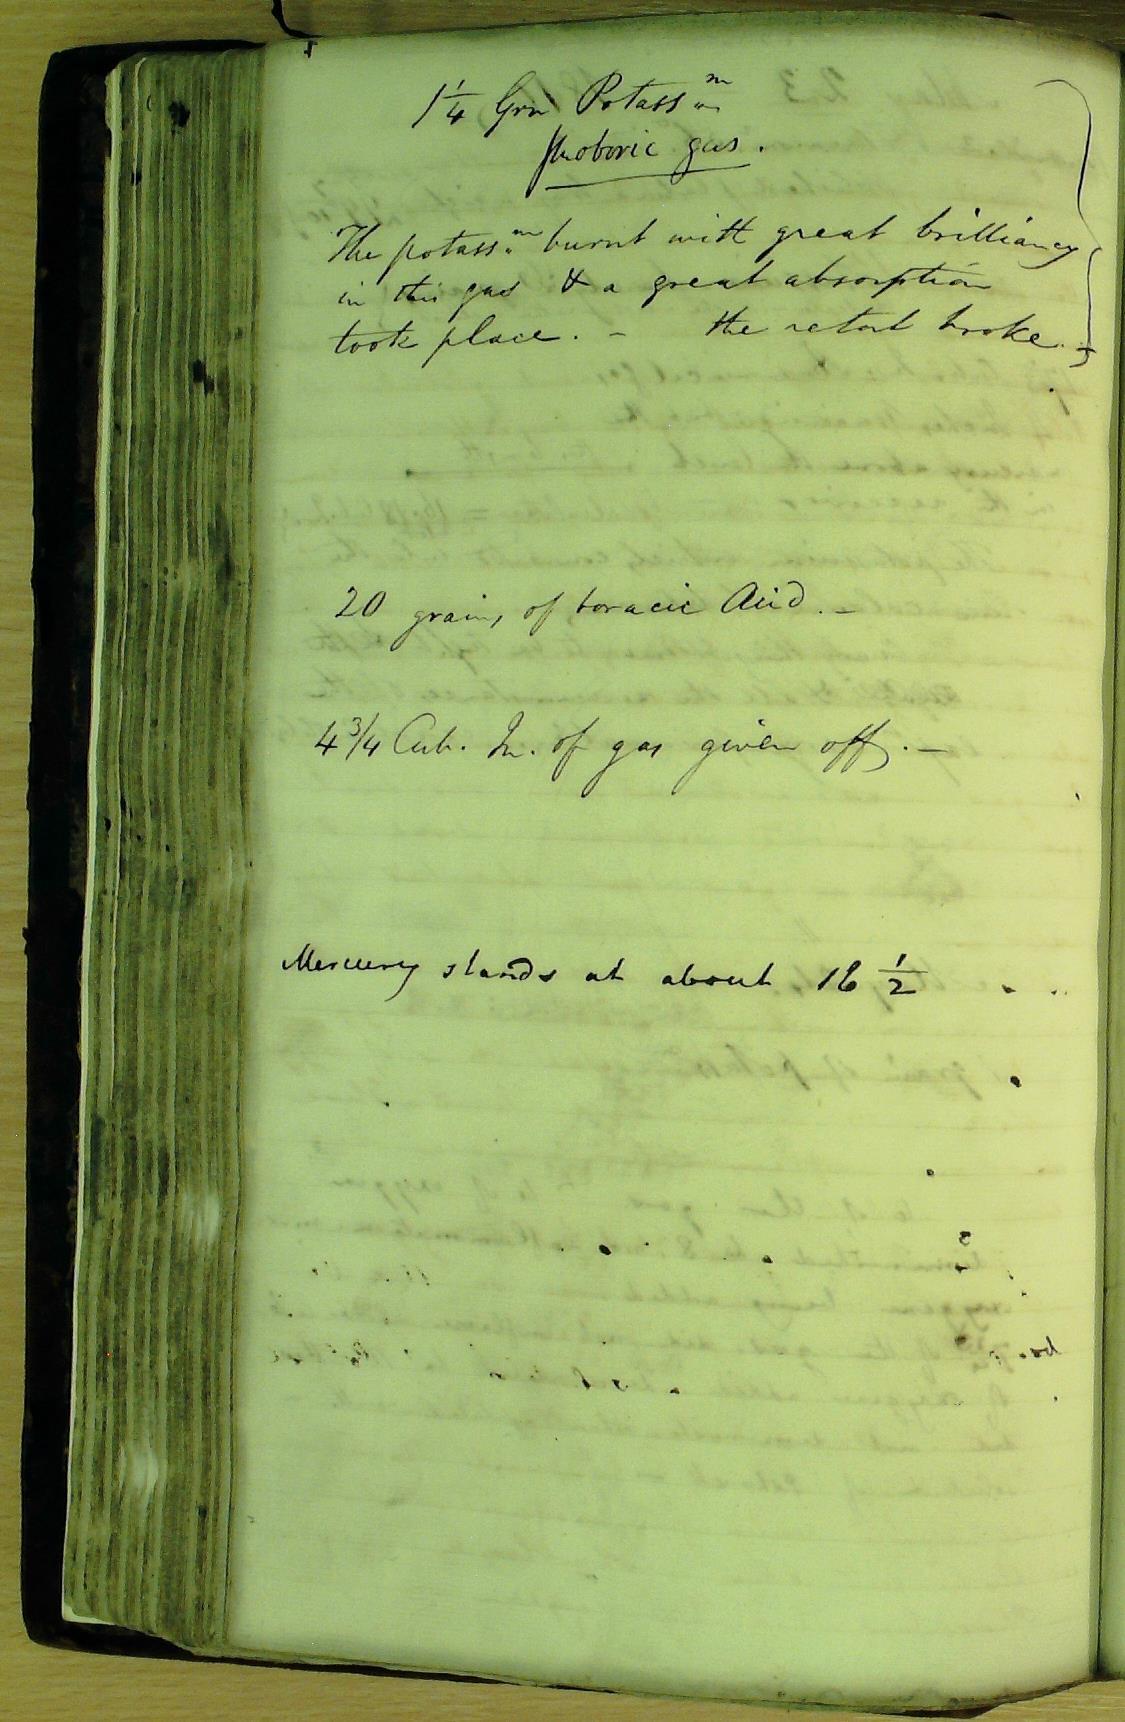 1 1/4 Grn Potassm
fluoboric gas.
The potassm burnt with great brilliancy
in this gas & a great absorption
took place. – the retort broke. –
20 grains of boracic Acid. –
4 3/4 Cub. In. of gas given off. –
Mercury stands at about 16 1/2